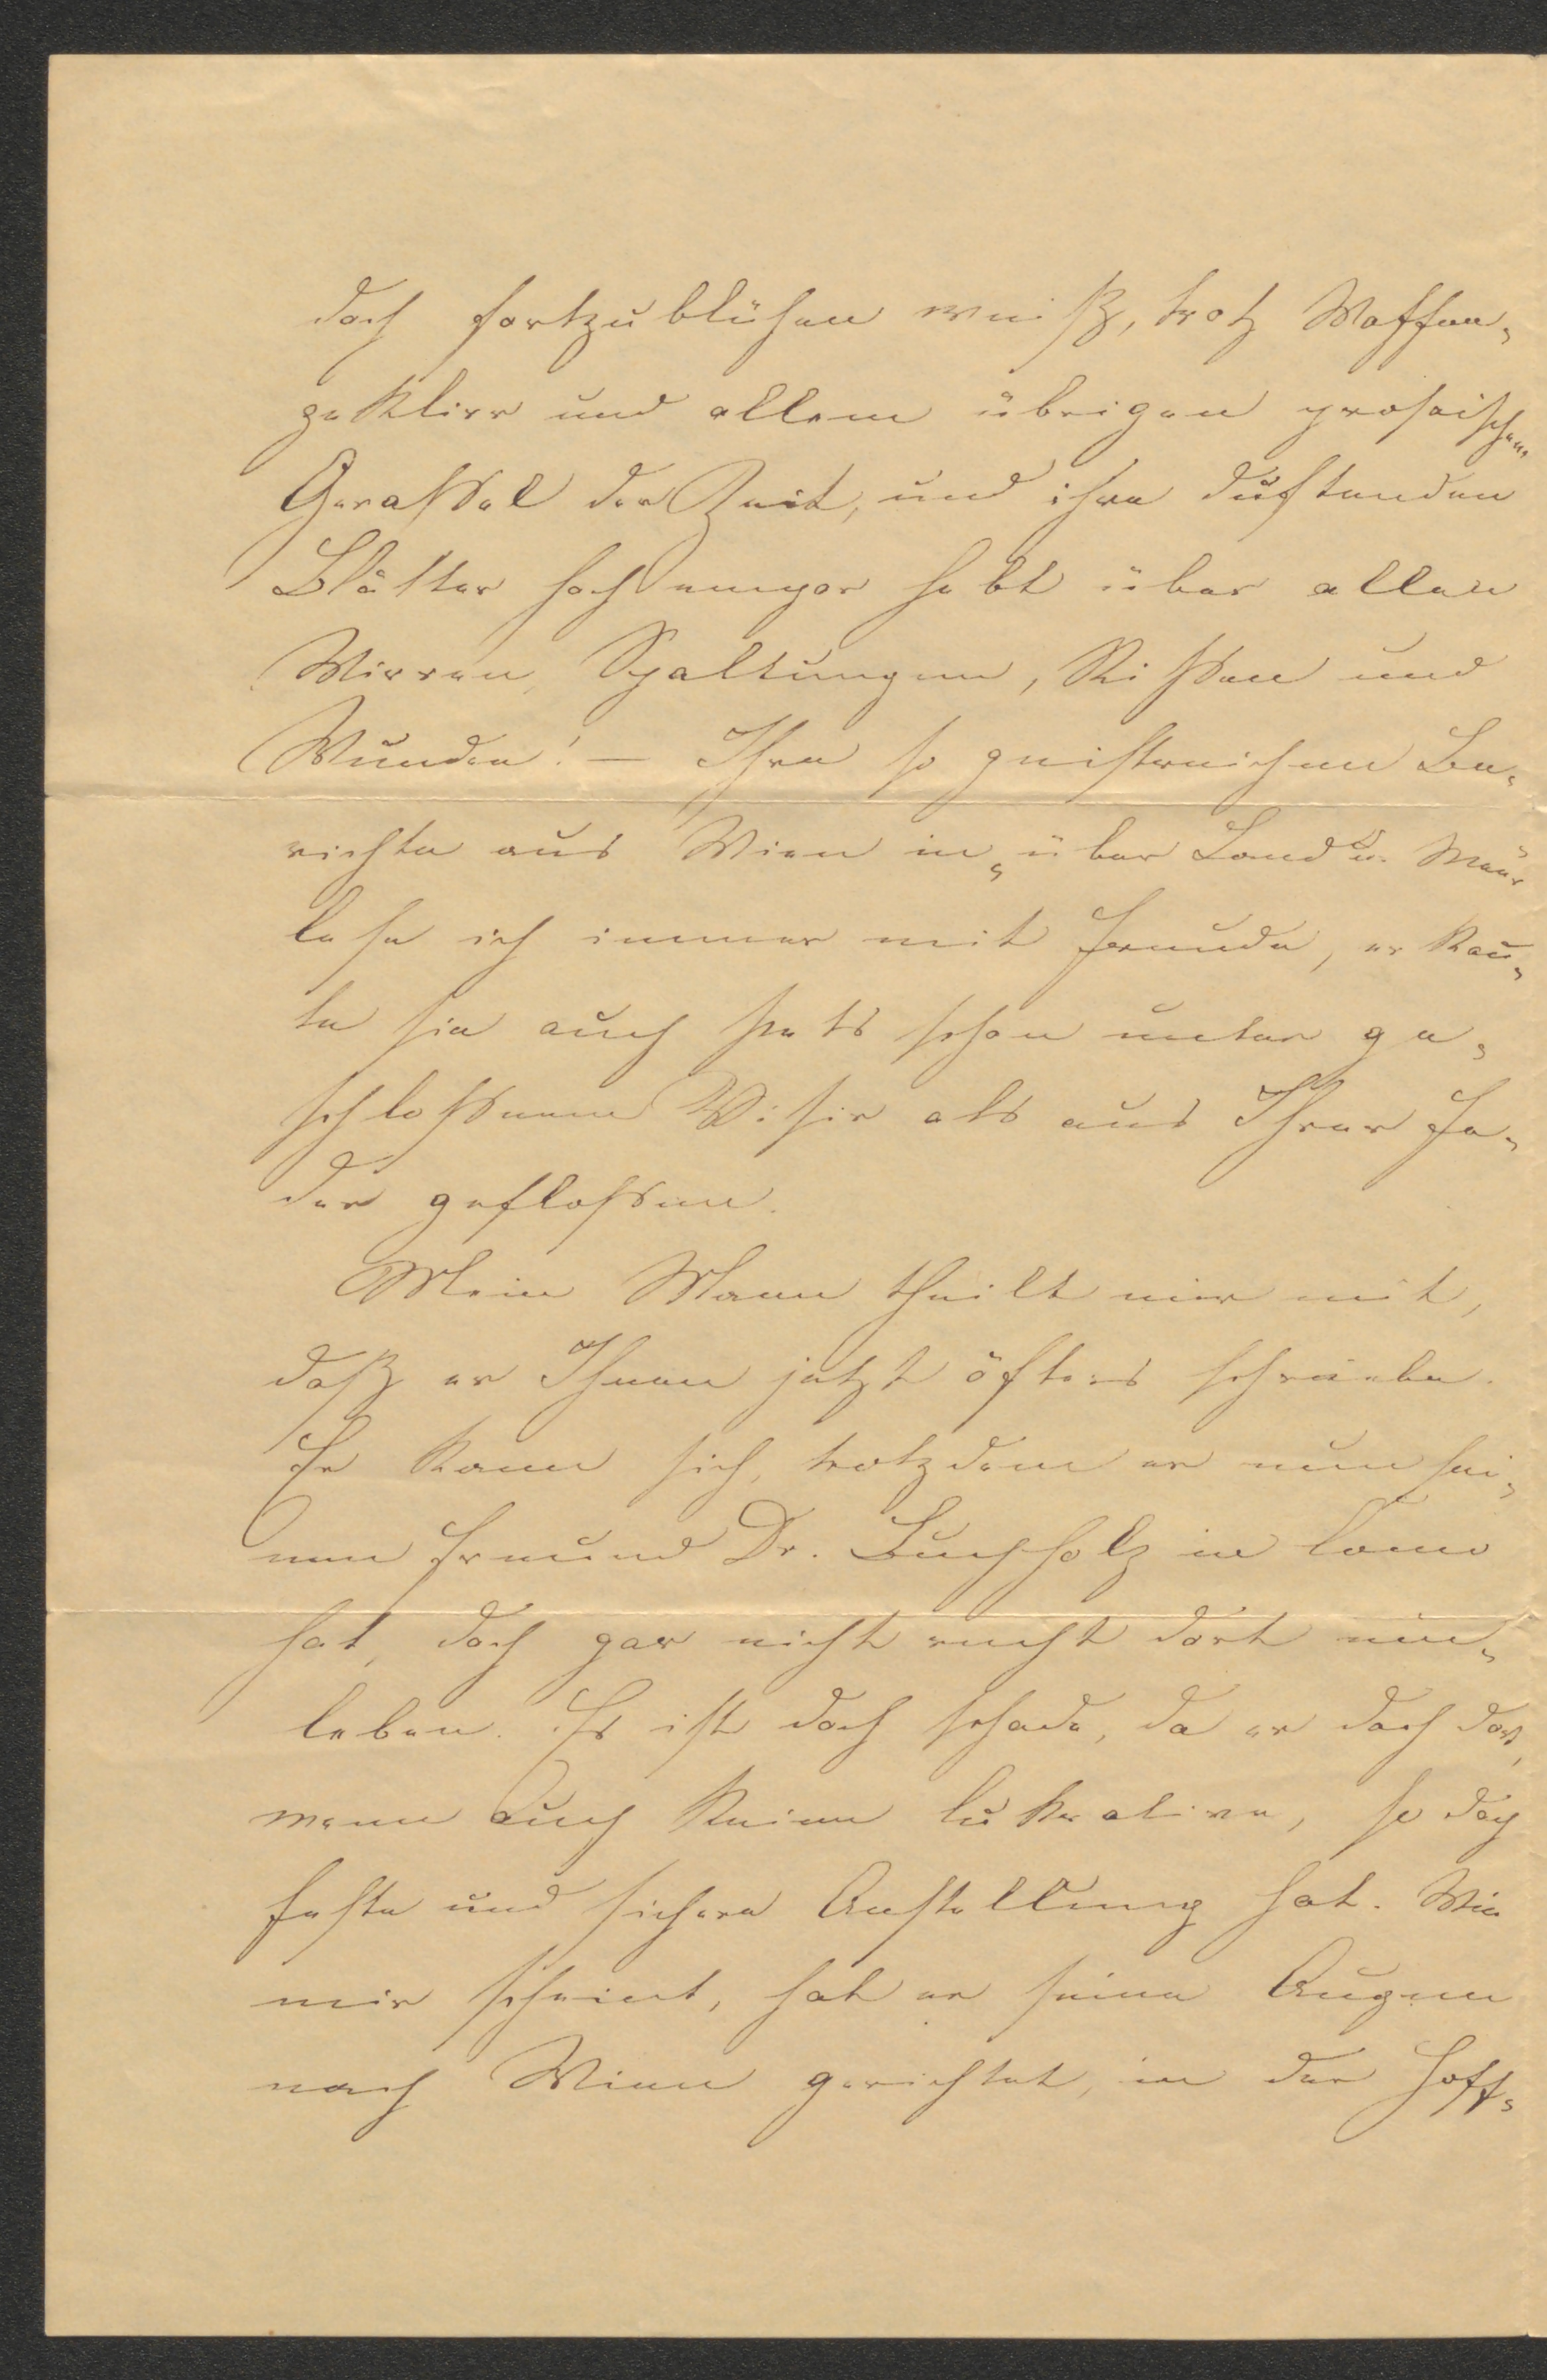 doch fortzublühen weiß, trotz Waffen-
geklirr und allem übrigen prosaischen
Gerassel der Zeit, und ihre duftenden
Blätter hoch empor hebt über allen
Wirren, Spaltungen, Rissen und
Wunden! — Ihre so geistreichen Be-
richte aus Wien in „über Land u. Meer"
lese ich immer mit Freude, erkan-
te sie auch stets schon unter ge-
schlossenem Visir als aus Ihrer Fe-
der geflossen.
Mein Mann theilt mir mit,
daß er Ihnen jetzt öfters schriebe.
Er kann sich, trotzdem er nun sei-
nen Freund Dr. Buchholz in Como
hat, doch gar nicht recht dort ein-
leben. Es ist doch schade, da er doch dort,
wenn auch keine lukrative, so doch
feste und sichere Anstellung hat. Wie
mir scheint, hat er seine Augen
nach Wien gerichtet, in der Hoff-